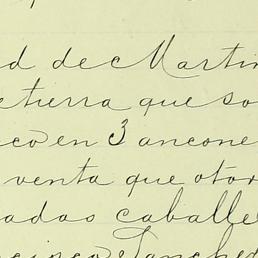 d de Martin
etierra que so
co en 3 ancone
venta que otor
adas caballe
Sanche